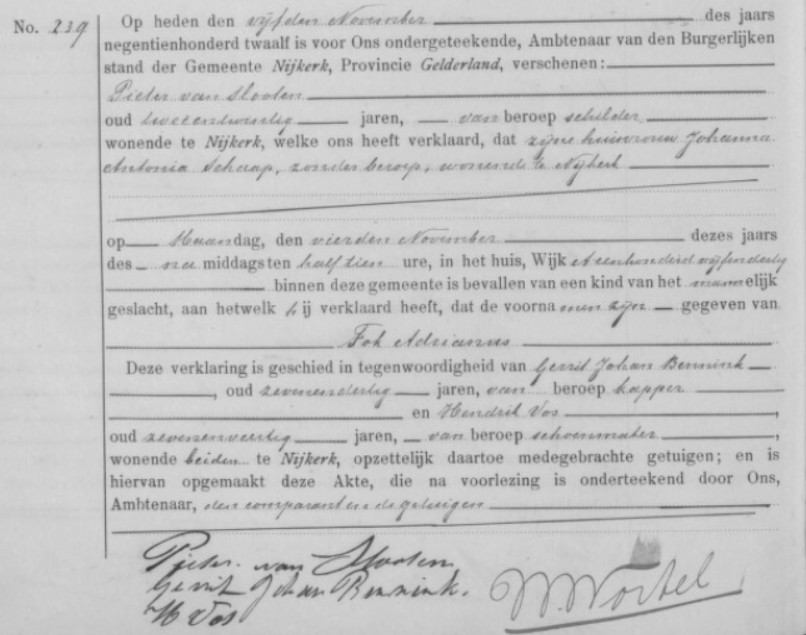 No. 239 Op heden den vijfden November des jaars
negentienhonderd twaalf is voor Ons ondergeteekende, Ambtenaar van den Burgerlijken
stand der Gemeente Nijkerk, Provincie Gelderland, verschenen:
Pieter van Slooten
oud tweeentwintig jaren, van beroep schilder
wonende te Nijkerk, welke ons heeft verklaard, dat zijne huisvrouw Johanna
Antonia Schaap, zonder beroep, wonende te Nijkerk
op Maandag, den vierden November dezes jaars
des na middags ten half tien ure, in het huis, Wijk A eenhonderd vijfendertig
binnen deze gemeente is bevallen van een kind van het mannelijk
geslacht, aan hetwelk hij verklaard heeft, dat de voornamen zijn gegeven van
Fok Adrianus
Deze verklaring is geschied in tegenwoordigheid van Gerrit Johan Bennink
, oud zevenendertig jaren, van beroep kapper
en Hendrik Vos,
oud zevenenveertig jaren, van beroep schoenmaker,
wonende beiden te Nijkerk, opzettelijk daartoe medegebrachte getuigen; en is
hiervan opgemaakt deze Akte, die na voorlezing is onderteekend door Ons,
Ambtenaar, den comparant en de getuigen
Pieter van Slooten
Gerrit Johan Bennink.
H Vos
W. Wortel